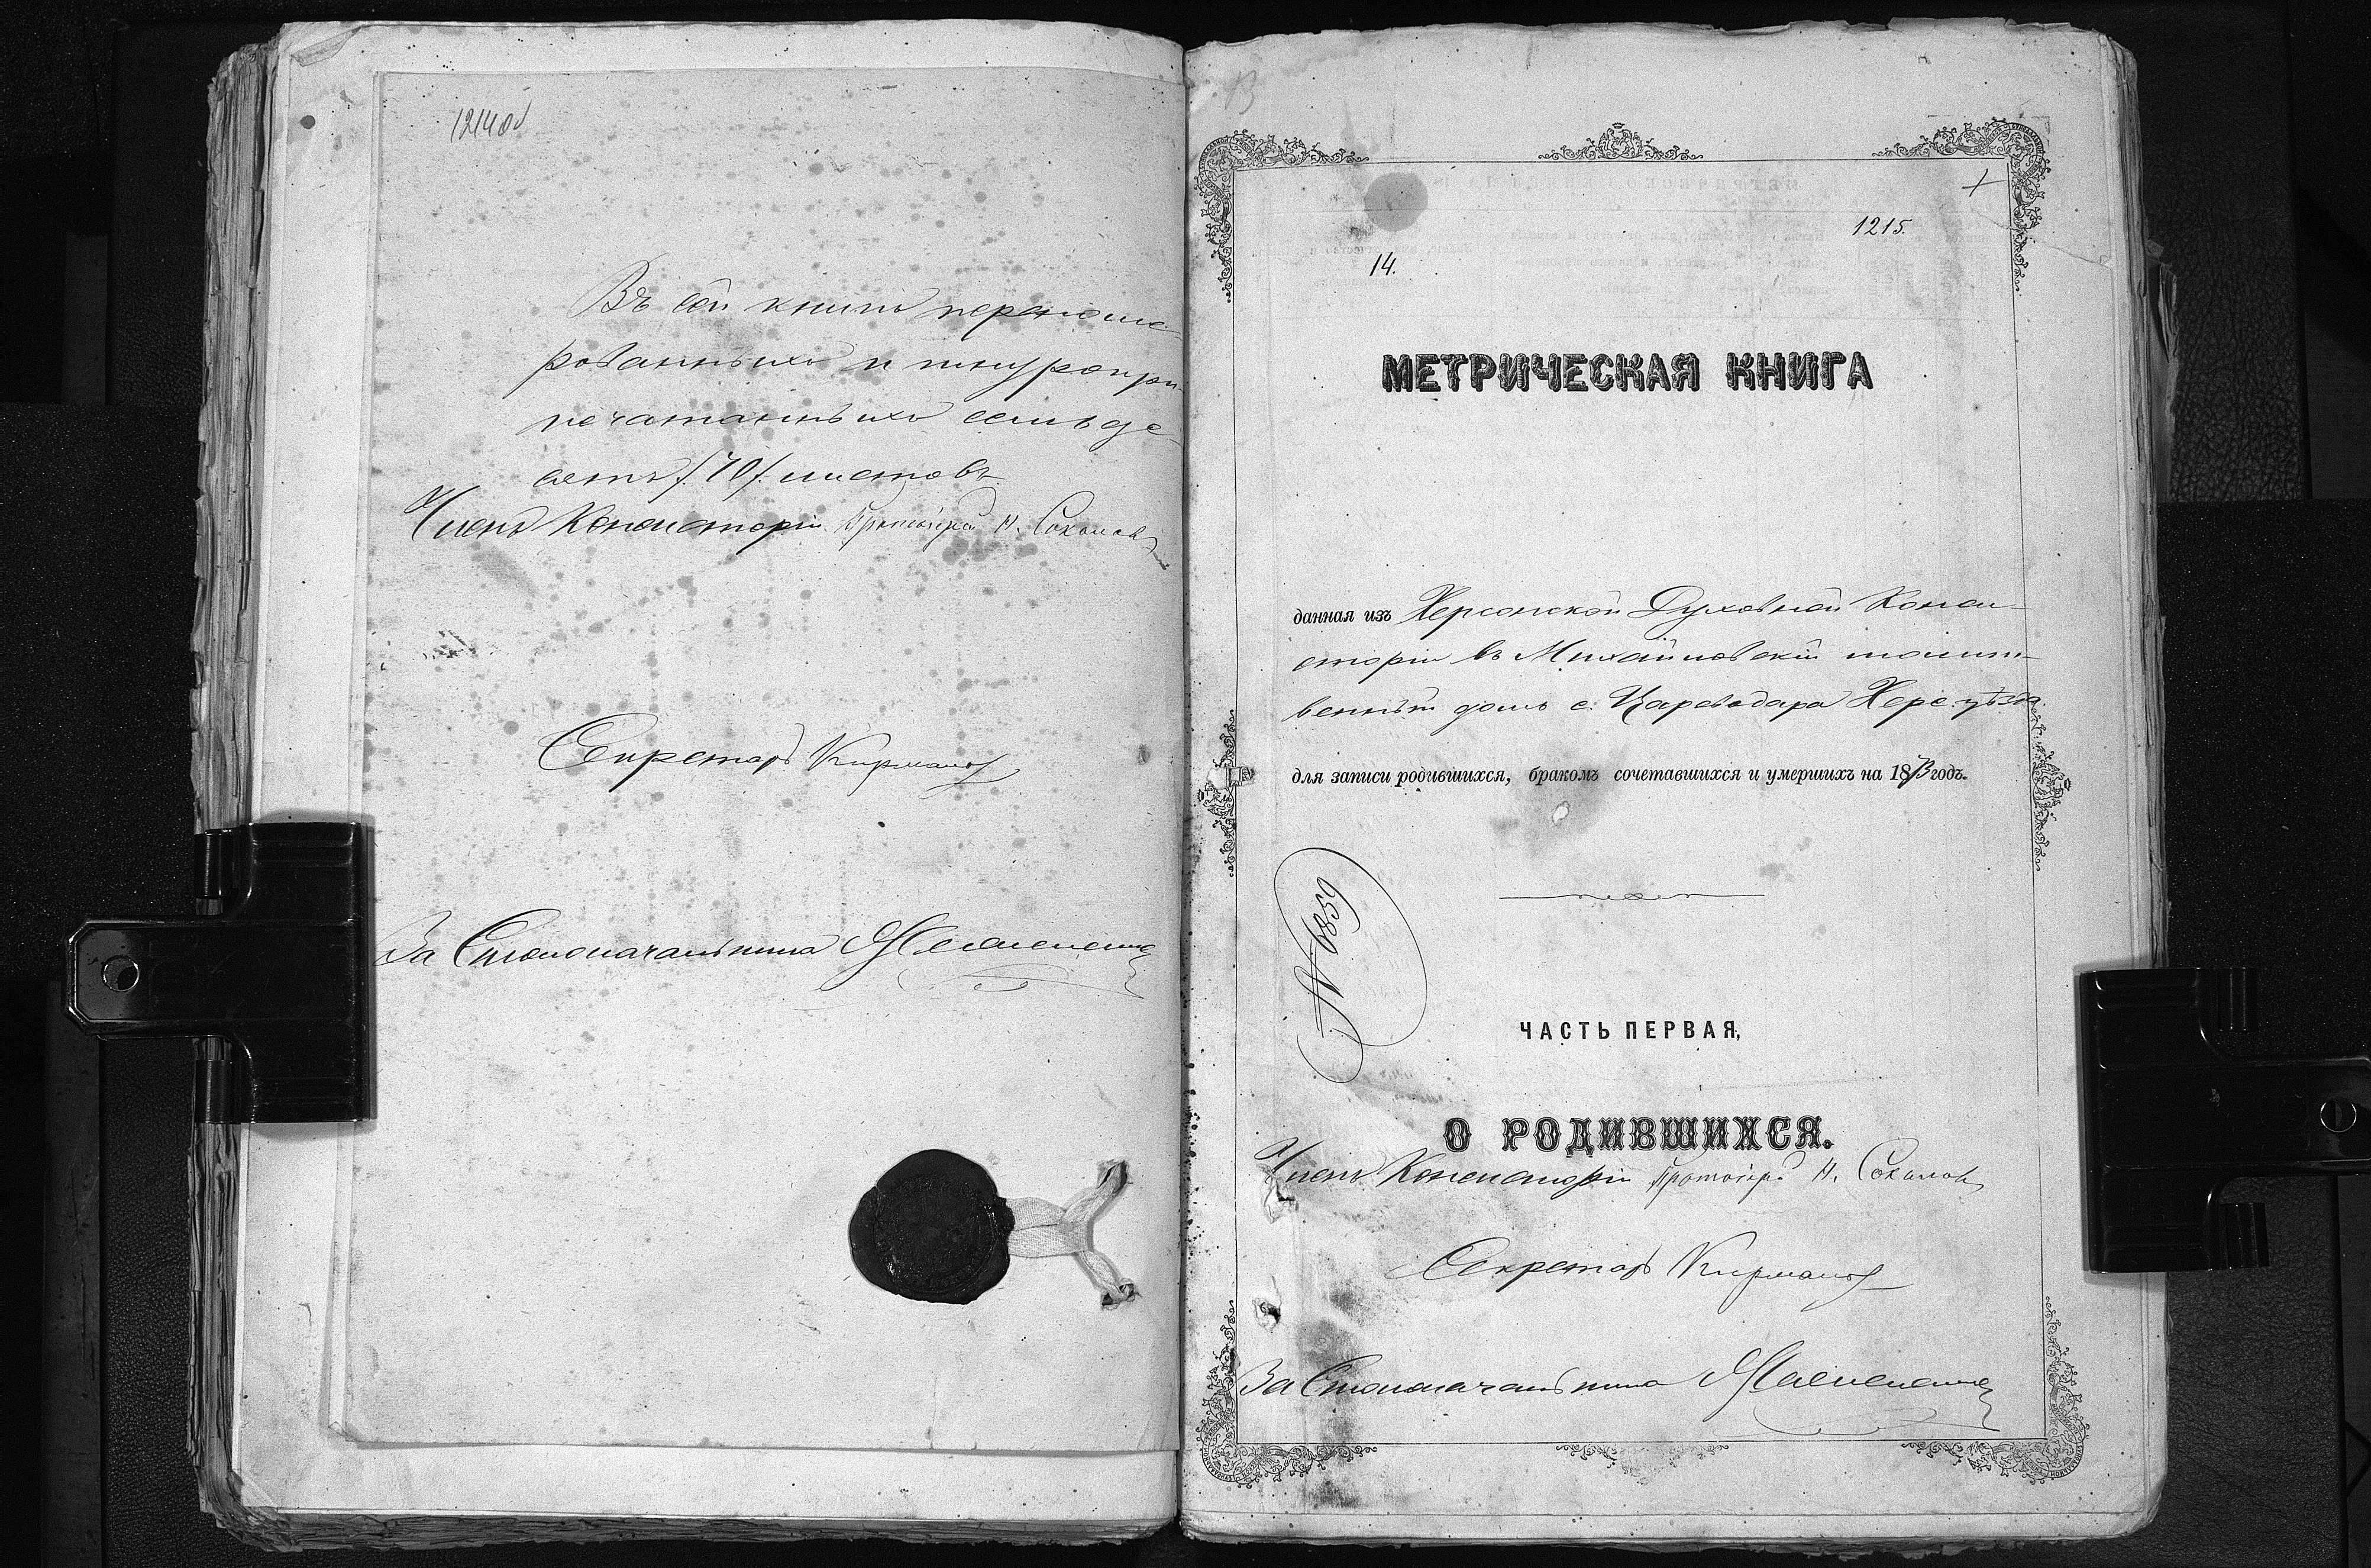 1214об
Въ сей книгѣ перенуме-
рованныхъ и шнуропри-
печатанныхъ семьде-
сятъ /70/ листовъ
Членъ Консисторіи Протоіерей Н. Соколовъ
Секретарь
За Столоначальника
13
1215.
14.
МЕТРИЧЕСКАЯ КНИГА
данная изъ Херсонской Духовной Конси-
сторіи въ Михайловскій молит-
венный домъ с. Цареводара Херс уѣзда
для записи родившихся, бракомъ сочетавшихся и умершихъ на 1873 годъ.
№ 6859
ЧАСТЬ ПЕРВАЯ,
О РОДИВШИХСЯ.
Членъ Консисторіи Протоіерей Н. Соколовъ
Секретарь
За Столоначальника